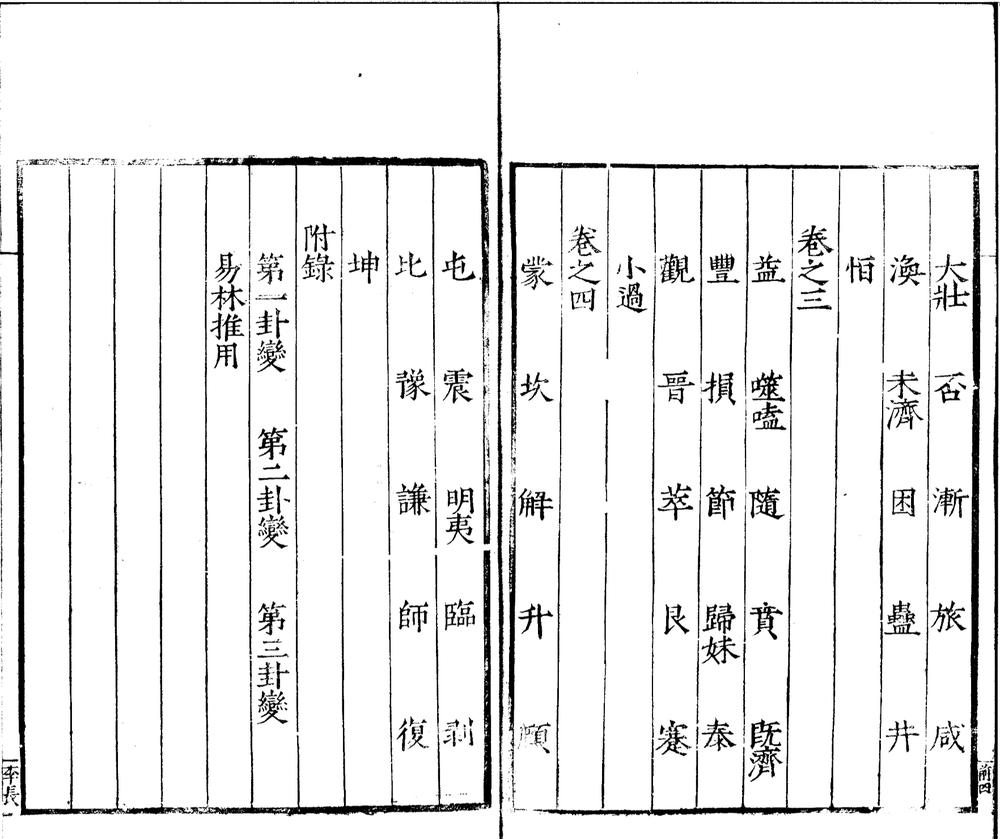 大壯 否 漸 旅 咸
渙 未濟 困 蠱 井
恒
卷之三
益 噬嗑 隨 賁 旣濟
豐 損 節 歸妹 泰
觀 晉 萃 艮 蹇
小過
卷之四
蒙 坎 解 升 頤
屯 震 明夷 臨 剥
比 豫 謙 師 復
坤
附錄
第一卦變 第二卦變 第三卦變
易林推用
前四
李長